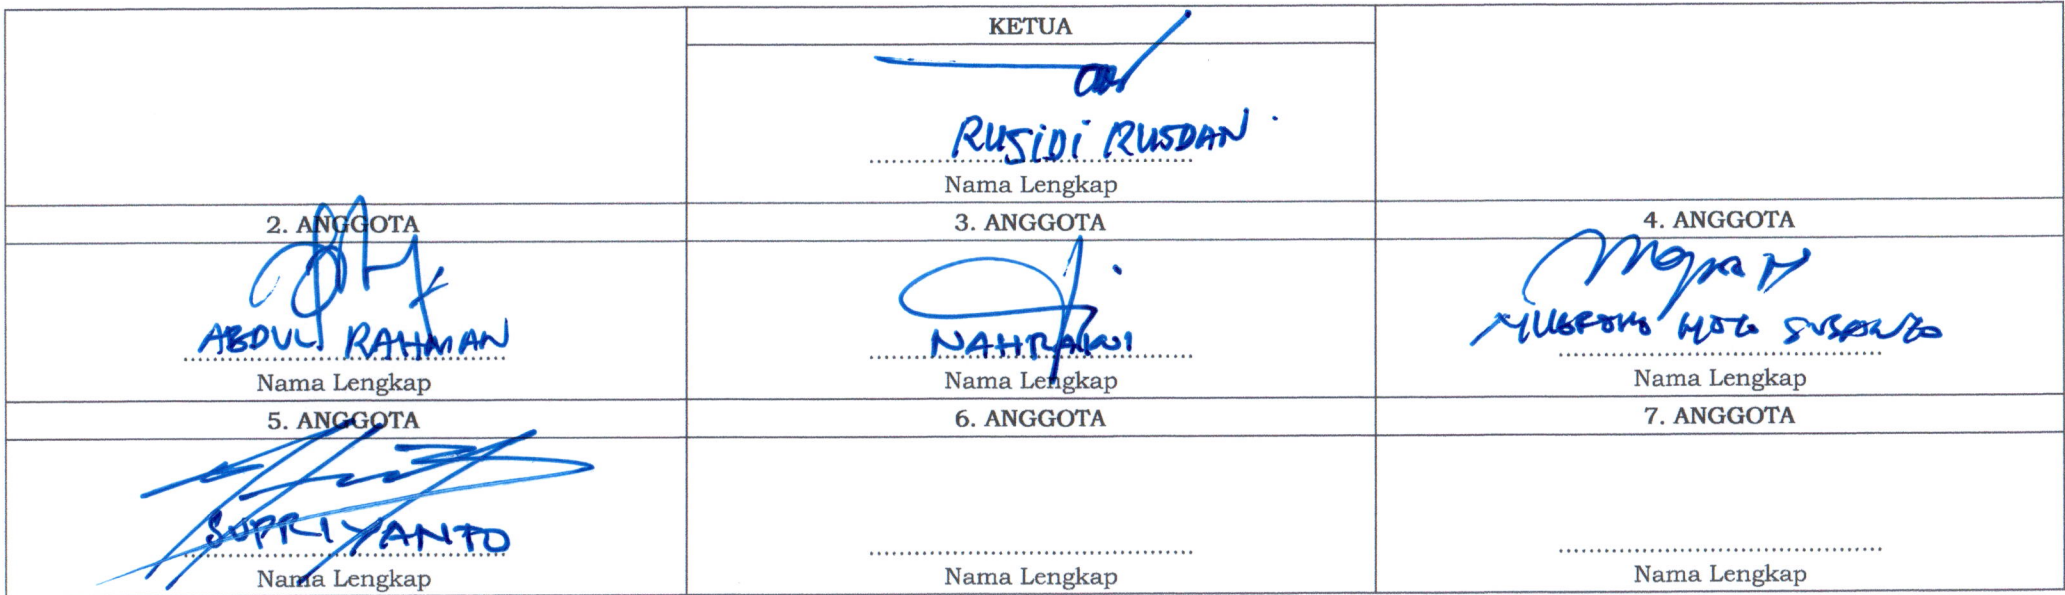 KETUA
RUSIDI RUSDAN
Nama Lengkap
2. ANGGOTA 3. ANGGOTA 4. ANGGOTA
ABDUL RAHMAN NAHRAWI
Nama Lengkap Nama Lengkap Nama Lengkap
5. ANGGOTA 6. ANGGOTA 7. ANGGOTA
SUPRIYANTO
Nama Lengkap Nama Lengkap Nama Lengkap